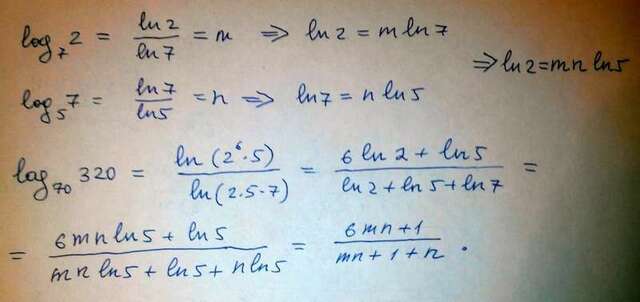 log₇2 = ln2/ln7 = m ⇒ ln2 = m ln7
⇒ ln2 = mn ln5
log₅7 = ln7/ln5 = n ⇒ ln7 = n ln5
log₇₀320 = ln(2⁶·5)/ln(2·5·7) = (6 ln2 + ln5)/(ln2 + ln5 + ln7) =
= (6mn ln5 + ln5)/(mn ln5 + ln5 + n ln5) = (6mn+1)/(mn+1+n) .